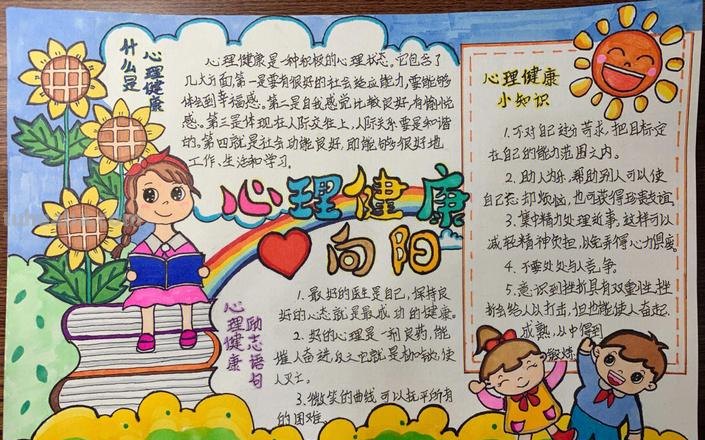 什么是
心理健康
心理健康是一种积极的心理状态,它包含了
几大方面,第一是要有很好的社会适应能力,要能够
体会到幸福感。第二是自我感觉比较良好,有愉悦
感。第三是体现在人际交往上,人际关系要是和谐
的。第四就是社会功能良好,即能够很好地
工作、生活和学习。
心理健康
向阳
心理健康
励志语句
1. 最好的医生是自己,保持良
好的心态就是最成功的健康。
2. 好的心理是一剂良药,能
催人奋进,反之它就是勃勃,使
人灭亡。
3. 微笑的曲线可以抚平所有
的困难。
心理健康
小知识
1. 不对自己过分苛求,把目标定
在自己的能力范围之内。
2. 助人为乐,帮助别人可以使
自己忘却烦恼,也可获得珍贵友谊
3. 集中精力处理故事,这样可以
减轻精神负担,以免弄得心力俱疲。
4. 不要处处与人竞争。
5. 意识到挫折具有双重性,挫
折会给人以打击,但也能使人奋起、
成熟,从中得到
锻炼。